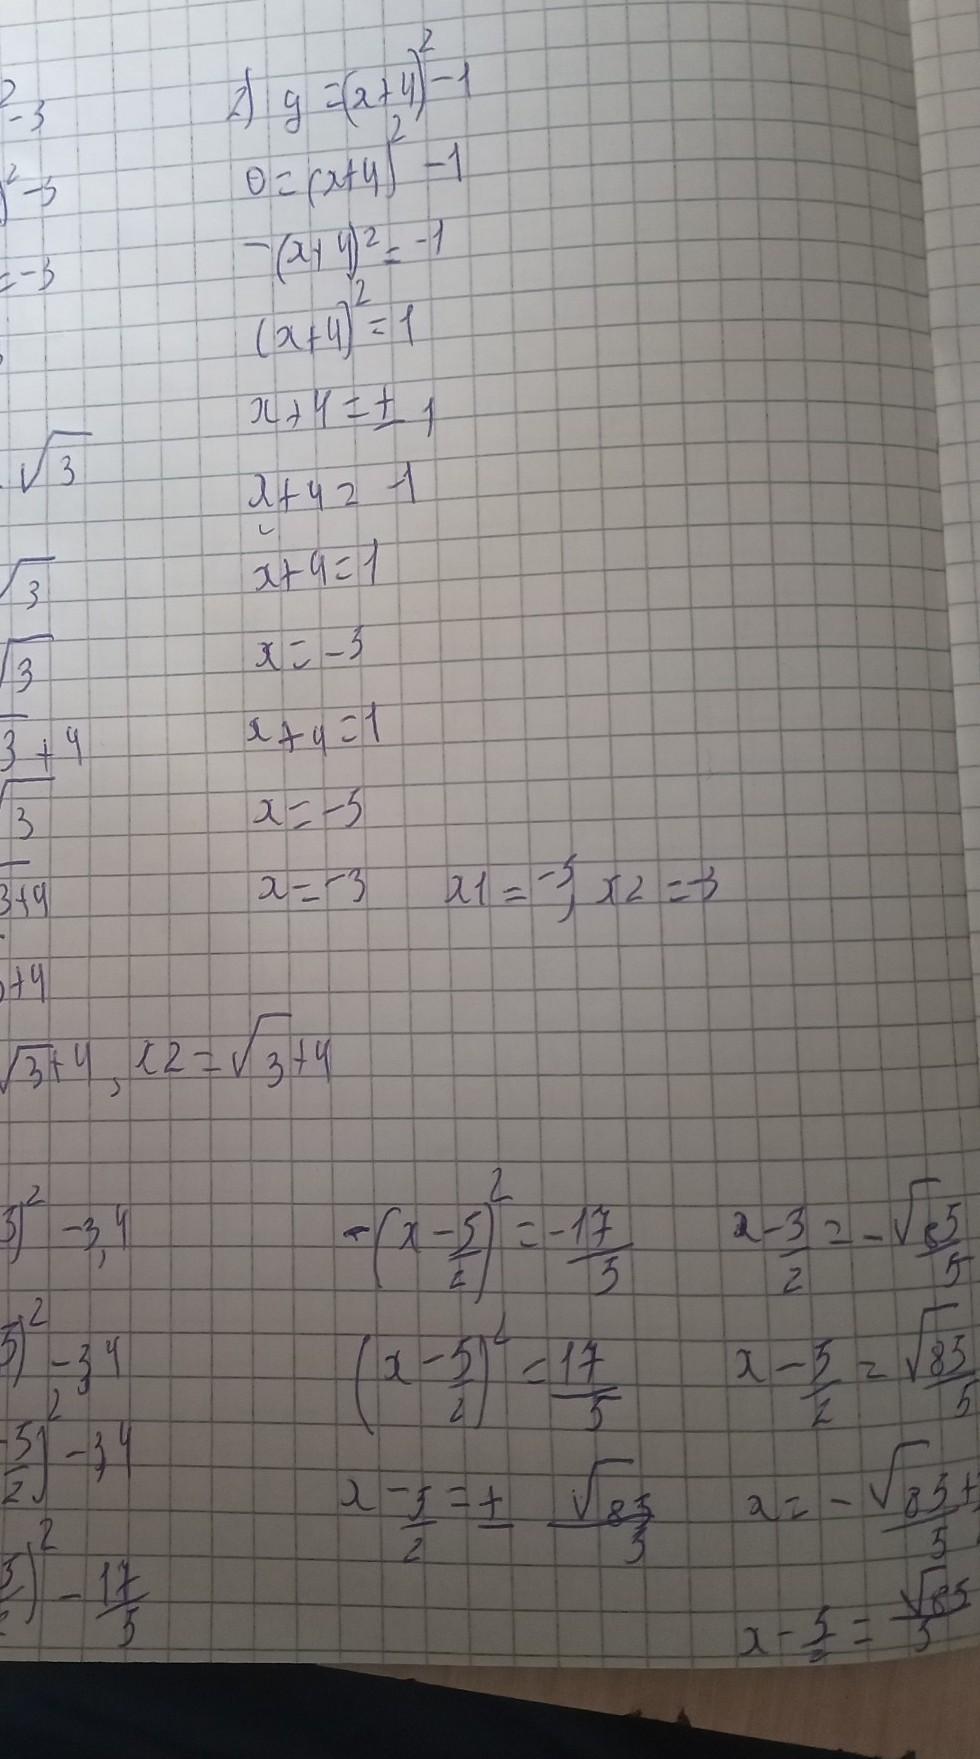 2 - 3
)² - 3
= -3
√3
√3
√3
3 + 4
√3
3 + 4
+ 4
√3 + 4, x2 = √3 + 4
2) y = (x+4)² - 1
0 = (x+4)² - 1
-(x+4)² = -1
(x+4)² = 1
x+4 = ± 1
x+4 = -1
x+4 = 1
x = -3
x+4 = 1
x = -5
x = -3 x1 = -5, x2 = -3
5)² - 3,4
5)² - 3,4
-5/2)² - 3,4
5/2)² - 17/5
-(x - 5/2)² = -17/5
(x - 5/2)² = 17/5
x - 5/2 = ± √85/5
x - 5/2 = - √85/5
x - 5/2 = √85/5
x = - √85/5 +
x - 5/2 = √85/5